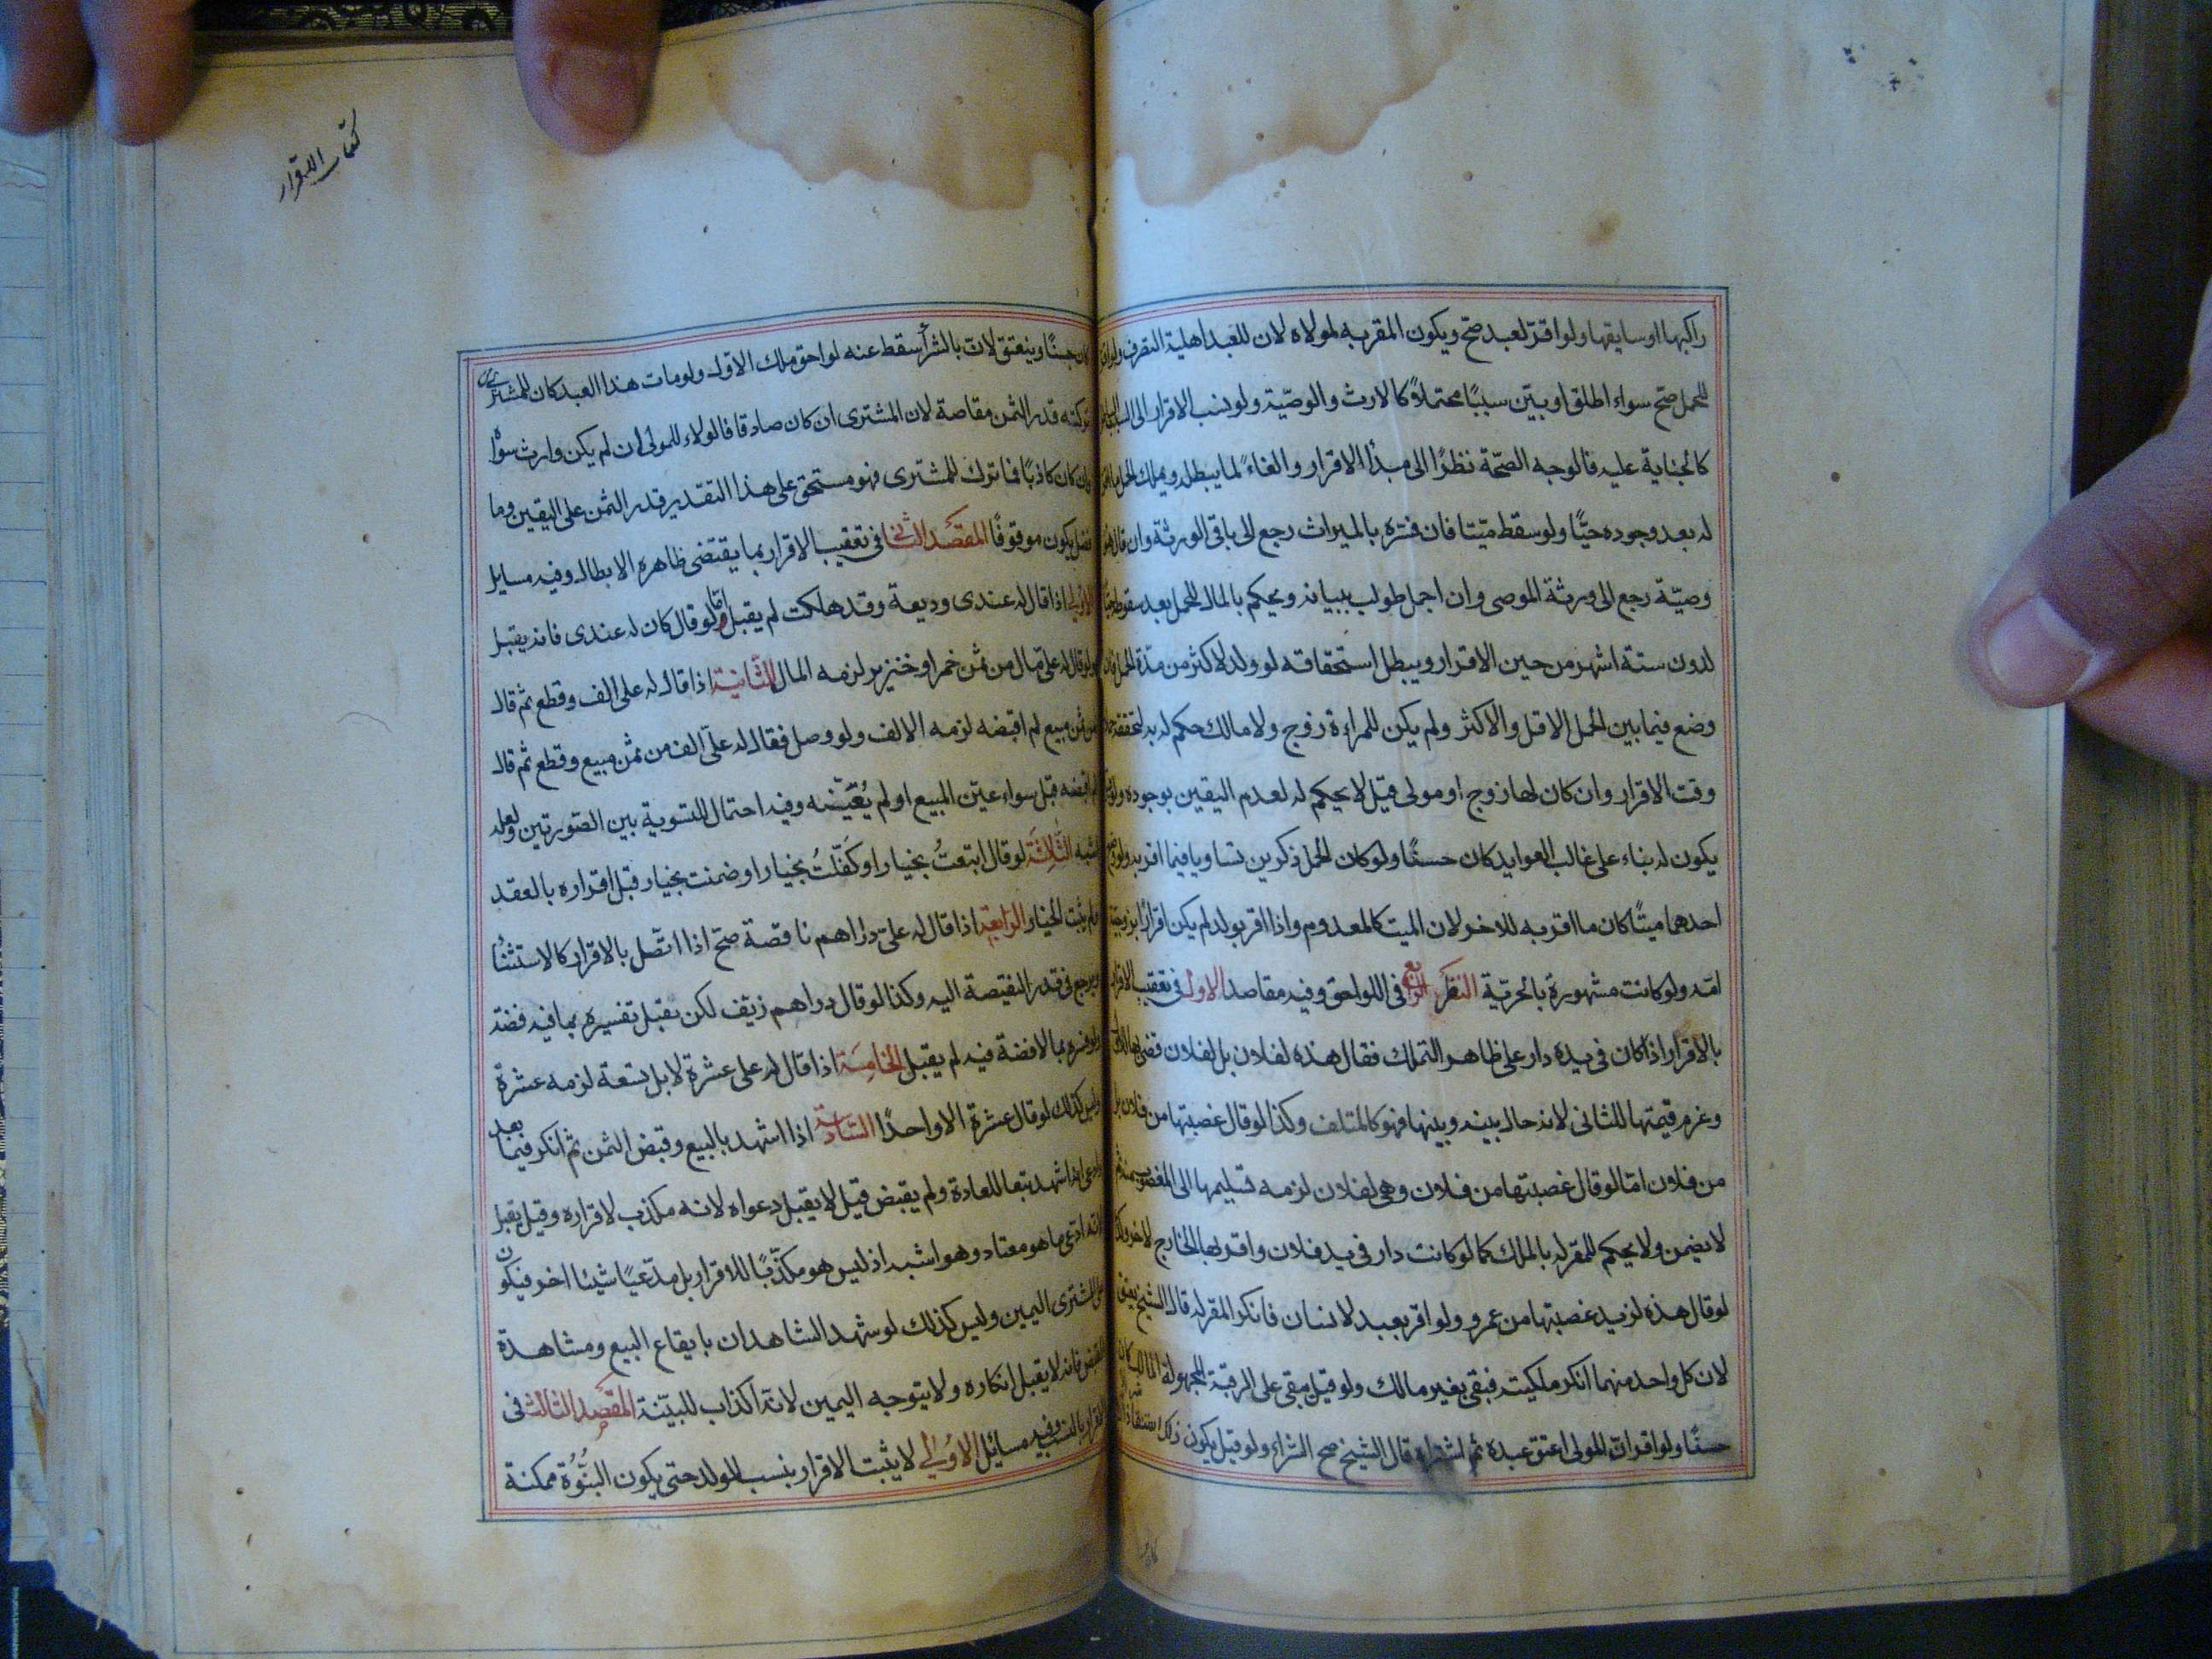 راكبها او سايقها ولو اقرّ لعبد صح ويكون المقر به لمولاه لان للعبد اهلية التصرف ولو اقر
للحمل صح سواء اطلق او بيّن سببًا محتملاً كالارث والوصيّة ولو نسب الاقرار الى السبب الباطل
كالجناية عليه فالوجه الصحّة نظرًا الى مبدأ الاقرار والغاءً لما يبطله ويملك الحمل ما اقر
له بعد وجوده حيًّا ولو سقط ميّتا فان فسّره بالميراث رجع الى باقى الورثة وان قال هو
وصيّة رجع الى ورثة الموصى وان اجمل طولب ببيانه ويحكم بالمال للحمل بعد سقوطه حيًا
لدون ستة اشهر من حين الاقرار ويبطل استحقاقه لو ولد لاكثر من مدّة الحمل ولو
وضع فيما بين الحمل الاقل والاكثر ولم يكن للمراءة زوج ولا مالك حكم له به لتحققه حال
وقت الاقرار وان كان لها زوج او مولى قيل لا يحكم له لعدم اليقين بوجوده ولو قيل
يكون له بناء على غالب العوايد كان حسنًا ولو كان الحمل ذكرين تساويا فيما اقر به ولو وضع
احدهما ميتًا كان ما اقر به للاخر لان الميت كالمعدوم واذا اقر بولد لم يكن اقرارًا بزوجية
امّه ولو كانت مشهورة بالحريّة النظر الرابع فى اللواحق وفيه مقاصد الاول فى تعقيب الاقرار
بالاقرار اذا كان فى يده دار على ظاهر التملك فقال هذه لفلان بل لفلان قضى بها للاول
وغرم قيمتها للثانى لانه حال بينه وبينها فهو كالمتلف وكذا لو قال غصبتها من فلان بل
من فلان امّا لو قال غصبتها من فلان وهى لفلان لزمه تسليمها الى المغصوب منه ثم
لا يضمن ولا يحكم للمقر له بالملك كما لو كانت دار فى يد فلان واقر بها الخارج لاخر وكذا
لو قال هذه لزيد غصبتها من عمرو ولو اقر بعبد لانسان فانكر المقر له قال الشيخ يعتق
لان كل واحد منهما انكر ملكيته فبقى بغير مالك ولو قيل يبقى على الرقية المجهولة المالك كان
حسنًا ولو اقر ان المولى اعتق عبده ثم اشتراه قال الشيخ صح الشراء ولو قيل يكون ذلك استنقاذا
كتاب الاقرار
كان حسنًا وينعتق لان بالشرأ سقط عنه لواحق ملك الاول ولو مات هذا العبد كان للمشترى
من تركته قدر الثمن مقاصة لان المشترى ان كان صادقا فالولاء للمولى ان لم يكن وارث سواه
وان كان كاذبًا فما ترك للمشترى فهو مستحق على هذا التقدير قدر الثمن على اليقين وما
فضل يكون موقوفًا المقصد الثانى فى تعقيب الاقرار بما يقتضى ظاهره الابطال وفيه مسايل
الاولى اذا قال له عندى وديعة وقد هلكت لم يقبل امّا لو قال كان له عندى فانه يقبل
ولو قال له علىّ مال من ثمن خمر او خنزير لزمه المال الثانية اذا قال له على الف وقطع ثم قال
من ثمن مبيع لم اقبضه لزمه الالف ولو وصل فقال له علىّ الف من ثمن مبيع وقطع ثم قال
لم اقبضه قبل سواء عيّن المبيع او لم يُعيّنه وفيه احتمال للتسوية بين الصّورتين ولعله
اشبه الثالثة لو قال ابتعتُ بخيار او كفلتُ بخيار او ضمنت بخيار قبل اقراره بالعقد
ولم يثبت الخيار الرابعة اذا قال له علىّ دراهم ناقصة صح اذا اتّصل بالاقرار كالاستثنأ
ويرجع فى قدر النقيصة اليه وكذا لو قال دراهم زيّف لكن يقبل تفسيره بما فيه فضة
ولو فسّره بما لا فضة فيه لم يقبل الخامسة اذا قال له على عشرة لا بل تسعة لزمه عشرة
وليس كذلك لو قال عشرة الا واحدًا السّادسة اذا اشهد بالبيع وقبض الثمن ثم انكر فيما بعد
وادعى انه اشهد تبعا للعادة ولم يقبض قيل لا يقبل دعواه لانه مكذب لاقراره وقيل يقبل
لانه ادعى ما هو معتاد وهو اشبه اذ ليس هو مكذّبًا للاقرار بل مدّعيًا شيئا اخر فيكون
على المشترى اليمين وليس كذلك لو شهد الشاهدان بايقاع البيع ومشاهدة
القبض فانه لا يقبل انكاره ولا يتوجه اليمين لانّه اكذاب للبيّنة المقصد الثالث فى
الاقرار بالنسب وفيه مسائل الاولى لا يثبت الاقرار بنسب الولد حتى يكون البنوّة ممكنة